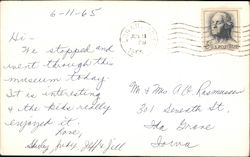 6-11-65
Hi -
We stopped and
went through this
museum today.
It is interesting
& the kids really
enjoyed it.
Love,
Shirley, Judy, Jeff & Jill
JUN 11
PM
Mr & Mrs A.O. Rasmussen
301 Seventh St.
Ida Grove
Iowa